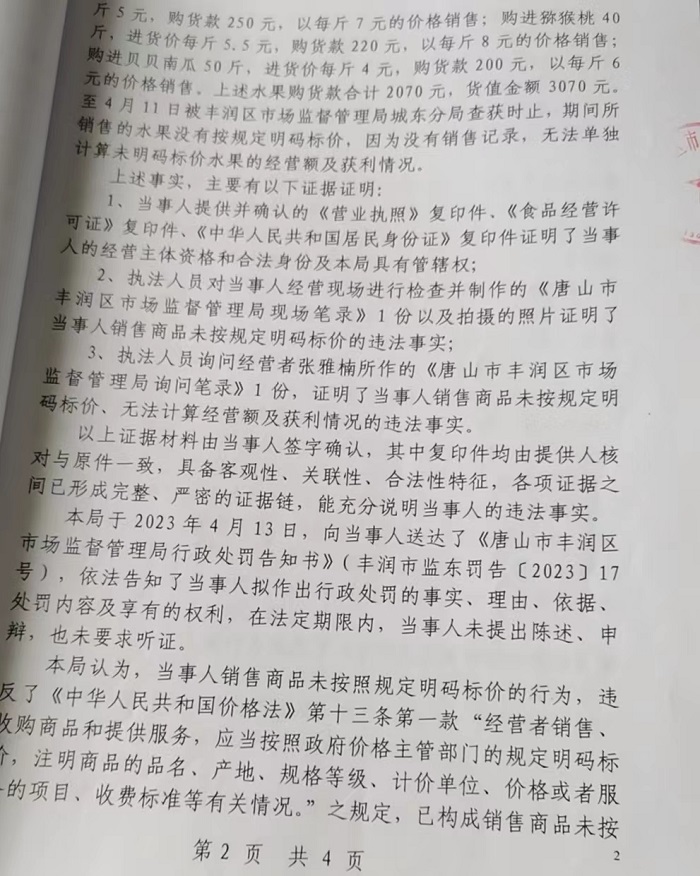 斤5元，购货款250元，以每斤7元的价格销售；购进猕猴桃40
斤，进货价每斤5.5元，购货款220元，以每斤8元的价格销售；
购进贝贝南瓜50斤，进货价每斤4元，购货款200元，以每斤6
元的价格销售。上述水果购货款合计2070元，货值金额3070元。
至4月11日被丰润区市场监督管理局城东分局查获时止，期间所
销售的水果没有按规定明码标价，因为没有销售记录，无法单独
计算未明码标价水果的经营额及获利情况。
上述事实，主要有以下证据证明：
1、当事人提供并确认的《营业执照》复印件、《食品经营许
可证》复印件、《中华人民共和国居民身份证》复印件证明了当事
人的经营主体资格和合法身份及本局具有管辖权；
2、执法人员对当事人经营现场进行检查并制作的《唐山市
丰润区市场监督管理局现场笔录》1份以及拍摄的照片证明了
当事人销售商品未按规定明码标价的违法事实；
3、执法人员询问经营者张雅楠所作的《唐山市丰润区市场
监督管理局询问笔录》1份，证明了当事人销售商品未按规定明
码标价、无法计算经营额及获利情况的违法事实。
以上证据材料由当事人签字确认，其中复印件均由提供人核
对与原件一致，具备客观性、关联性、合法性特征，各项证据之
间已形成完整、严密的证据链，能充分说明当事人的违法事实。
本局于2023年4月13日，向当事人送达了《唐山市丰润区
市场监督管理局行政处罚告知书》（丰润市监东罚告〔2023〕17
号），依法告知了当事人拟作出行政处罚的事实、理由、依据、
处罚内容及享有的权利，在法定期限内，当事人未提出陈述、申
辩，也未要求听证。
本局认为，当事人销售商品未按照规定明码标价的行为，违
反了《中华人民共和国价格法》第十三条第一款“经营者销售、
收购商品和提供服务，应当按照政府价格主管部门的规定明码标
价，注明商品的品名、产地、规格等级、计价单位、价格或者服
的项目、收费标准等有关情况。”之规定，已构成销售商品未按
第2页 共4页
2
市